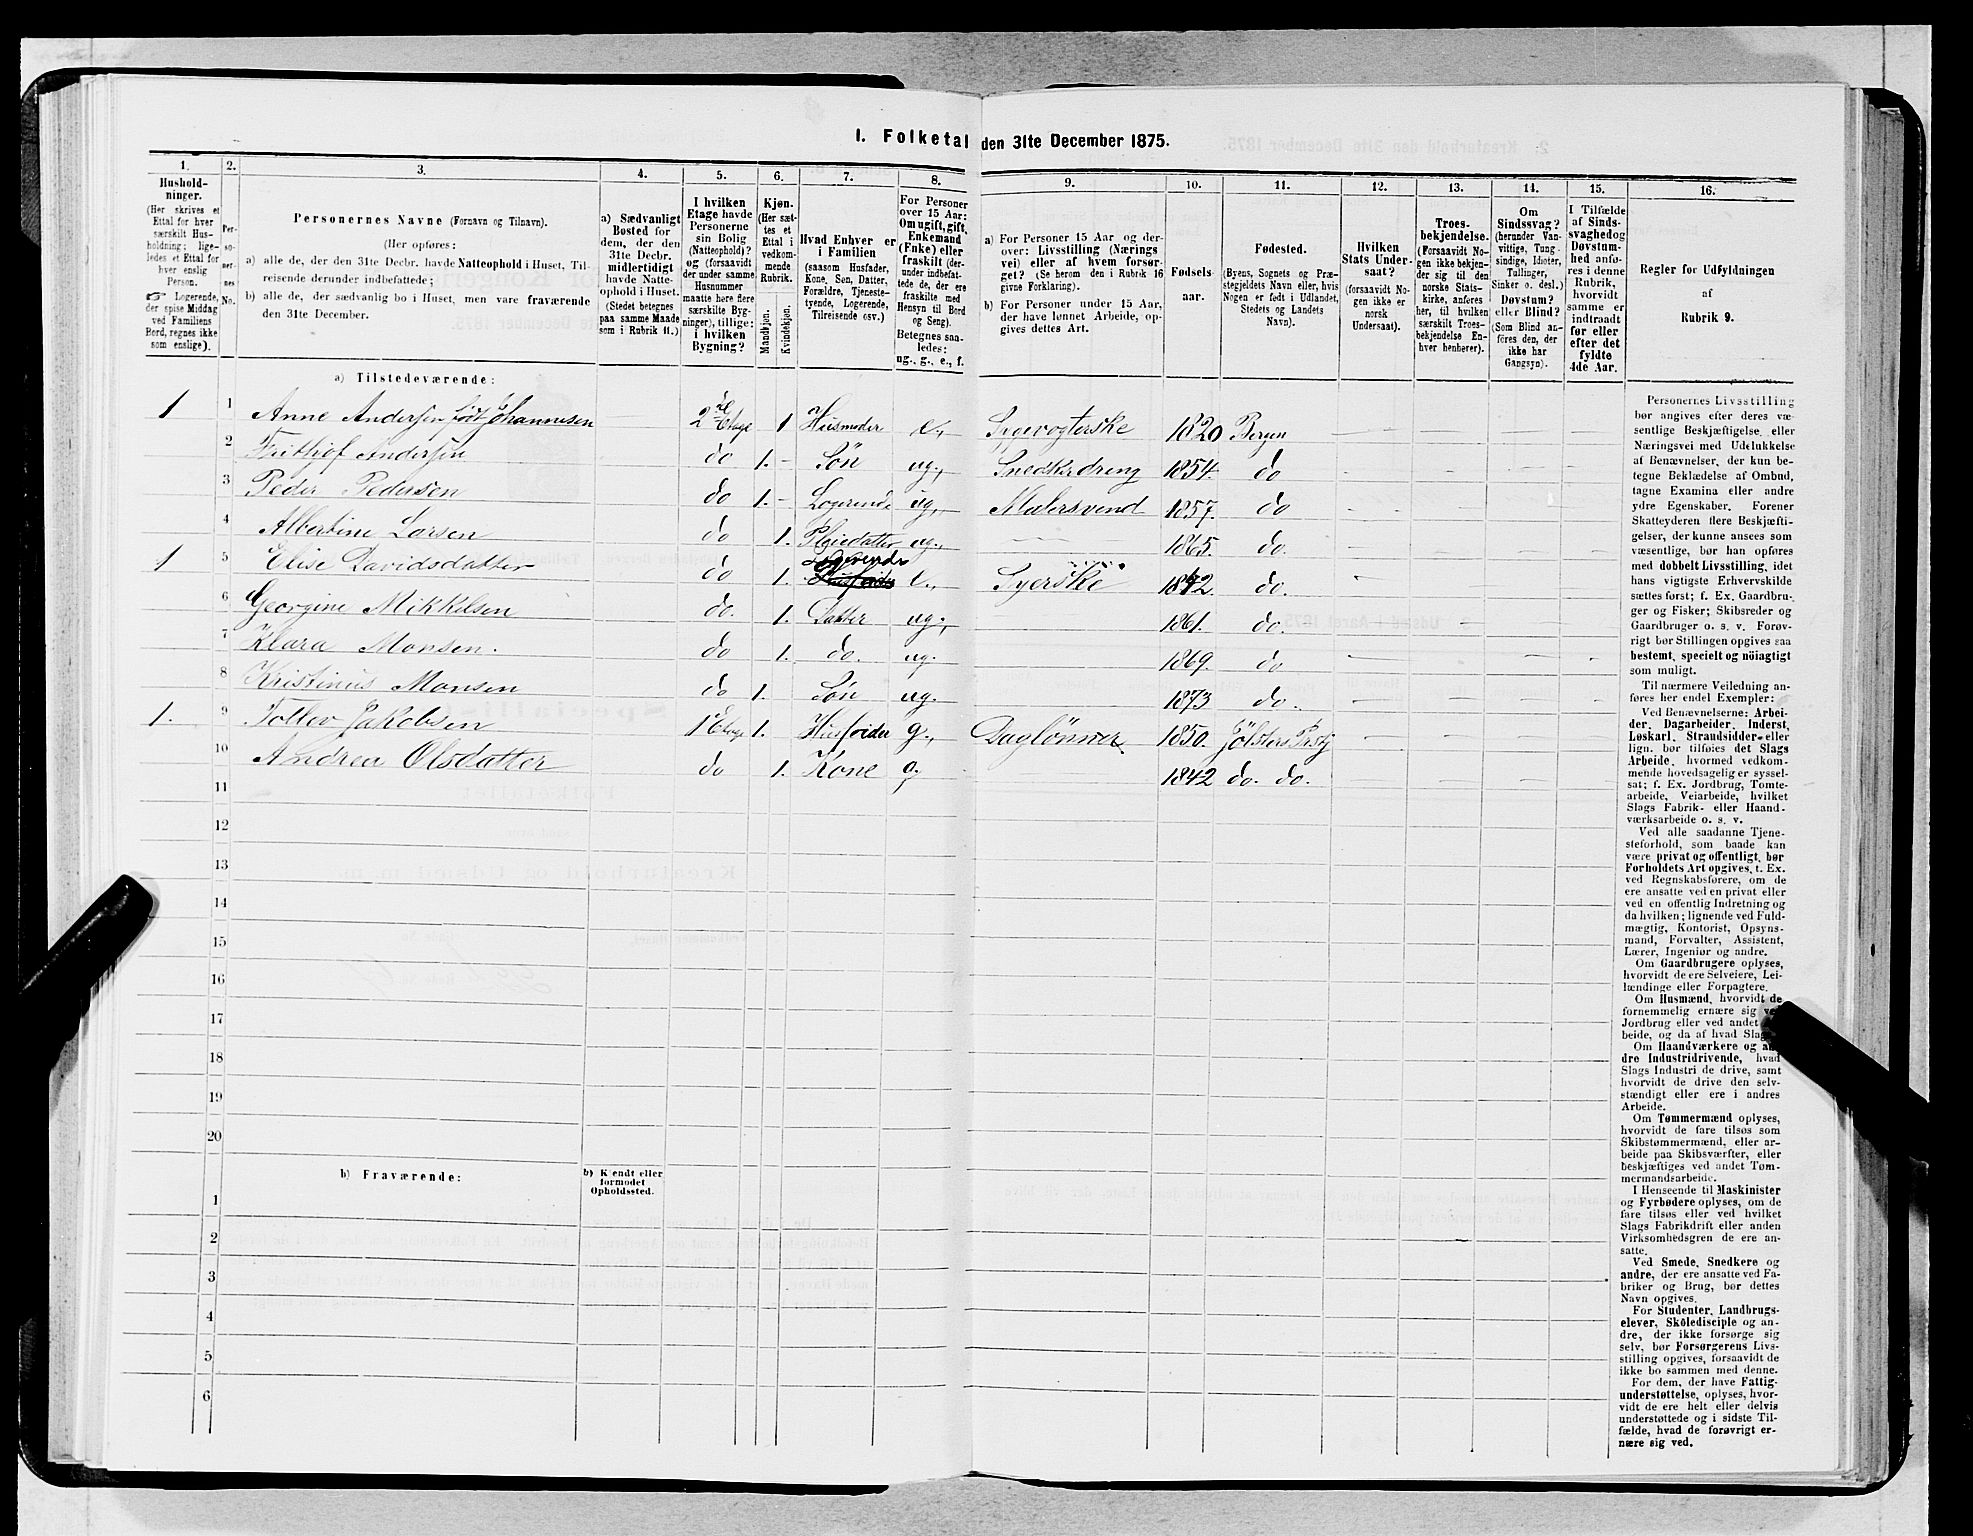 1. Folketal den 31te December 1875.
1. 2. 3. 4. 5. 6. 7. 8. 9. 10. 11. 12. 13. 14. 15. 16.
Hushold-
ninger.
(Her skrives et
Ettal for hver
særskilt Hus-
holdning; lige-
ledes et Ettal for
hver enslig
Person.
☞ Logerende,
der spise Middag
ved Familiens
Bord, regnes ikke
som enslige).
Per-
so-
ner-
nes
No.
Personernes Navne (Fornavn og Tilnavn).
(Her opføres:
a) alle de, der den 31te Decbr. havde Natteophold i Huset, Til-
reisende derunder indbefattede;
b) alle de, der sædvanlig bo i Huset, men vare fraværende
den 31te December.
a) Sædvanligt
Bosted for
dem, der den
31te Decbr.
midlertidigt
havde Natte-
ophold i Huset.
(Stedet betegnes
paa samme Maade
som i Rubrik 11.)
I hvilken
Etage havde
Personerne
sin Bolig
(Natteophold)?
og (forsaavidt
der under samme
Husnummer
maatte høre flere
særskilte Byg-
ninger), tillige:
i hvilken
Bygning?
Kjøn.
(Her sæt-
tes et
Ettal i
vedkom-
mende
Rubrik.
Mandkjøn.
Kvindekjøn.
Hvad Enhver er
i Familien
(saasom Husfader,
Kone, Søn, Datter,
Forældre, Tjeneste-
tyende, Logerende,
Tilreisende osv.)
For Personer
over 15 Aar:
Om ugift, gift,
Enkemand
(Enke) eller
fraskilt (der-
under indbefat-
tede de, der ere
fraskilte med
Hensyn til Bord
og Seng).
Betegnes saa-
ledes:
ug., g., e., f.
a) For Personer 15 Aar og der-
over: Livsstilling (Nærings
vei) eller af hvem forsør-
get? (Se herom den i Rubrik 16
givne Forklaring).
b) For Personer under 15 Aar,
der have lønnet Arbeide, op-
gives dettes Art.
Fødsels-
aar.
Fødested.
(Byens, Sognets og Præ-
stegjeldets Navn eller, hvis
Nogen er født i Udlandet,
Stedets og Landets
Navn).
Hvilken
Stats Under-
saat?
(forsaavidt No-
gen ikke er
norsk
Undersaat).
Troes-
bekjendelse.
(Forsaavidt No-
gen ikke bekjen-
der sig til den
norske Stats-
kirke, anføres
her, til hvilken
særskilt Troes-
bekjendelse En-
hver henhører).
Om
Sindssvag?
(herunder Van-
vittige, Tung-
sindige, Idioter,
Tullinger,
Sinker o. desl.)
Døvstum?
eller Blind?
(Som Blind an-
føres den, der
ikke har
Gangsyn).
I Tilfælde
af Sinds-
svaghed og
Døvstum-
hed anfø-
res i denne
Rubrik,
hvorvidt
samme er
indtraadt
før eller
efter det
fyldte
4de Aar.
Regler for Udfyldningen
af
Rubrik 9.
a) Tilstedeværende:
1 1 Anne Andersen født Johannesen 2 Etage 1 Husmoder e., Sygevogterske 1820 Bergen
2 Frithjof Andersen do 1. Søn ug., Snedkerdreng 1854. do
3 Peder Pedersen do 1. Logerende ug., Malersvend 1857. do
4 Albertine Larsen do 1. Pleiedatter ug., 1865. do.
1 5 Elise Davidsdatter do 1. Logerende e., Syerske 1842 do.
6 Georgine Mikkelsen do. 1. Datter ug., 1861. do.
7 Klara Monsen. do 1. do. ug. 1869. do
8 Kristinus Monsen do 1. Søn ug. 1873 do.
1. 9 Tollev Jakobsen 1 Etage 1. Husfader g., Daglønner 1850. Jølsters Prstgj
10 Andrea Olsdatter do 1. Kone g 1842 do. do.
11
12
13
14
15
16
17
18
19
20
b) Fraværende:
b) Kjendt eller
formodet
Opholdssted.
1
2
3
4
5
6
Personernes Livsstilling
bør angives efter deres væ-
sentlige Beskjæftigelse eller
Næringsvei med Udelukkelse
af Benævnelser, der kun be-
tegne Beklædelse af Ombud,
tagne Examina eller andre
ydre Egenskaber. Forener
Skatteyderen flere Beskjæfti-
gelser, der kunne ansees som
væsentlige, bør han opføres
med dobbelt Livsstilling, idet
hans vigtigste Erhvervskilde
sættes først; f. Ex. Gaardbru-
ger og Fisker; Skibsreder og
Gaardbruger o. s. v. Forøv-
rigt bør Stillingen opgives saa
bestemt, specielt og nöiagtigt
som muligt.
Til nærmere Veiledning an-
føres her endel Exempler:
Ved Benævnelserne: Arbei-
der, Dagarbeider, Inderst,
Løskarl, Strandsidder eller
lign. bør tilføies det Slags
Arbeide, hvormed vedkom-
mende hovedsagelig er syssel-
sat; f. Ex. Jordbrug, Tomte-
arbeide, Veiarbeide, hvilket
Slags Fabrik- eller Haand-
værksarbeide o. s. v.
Ved alle saadanne Tjene-
steforhold, som baade kan
være privat og offentligt, bør
Forholdets Art opgives, t. Ex.
ved Regnskabsførere, om de
ere ansatte ved en privat eller
ved en offentlig Indretning og
da hvilken; lignende ved Fuld-
mægtig, Kontorist, Opsyns-
mand, Forvalter, Assistent,
Lærer, Ingeniør og andre.
Om Gaardbrugere oplyses,
hvorvidt de ere Selveiere, Lei-
lændinge eller Forpagtere.
Om Husmænd, hvorvidt de
fornemmelig ernære sig ved
Jordbrug eller ved andet
beide, og da af hvad Slags.
Om Haandværkere og an-
dre Industridrivende, hvad
Slags Industri de drive, samt
hvorvidt de drive den selv-
stændigt eller ere i andres
Arbeide.
Om Tømmermænd oplyses,
hvorvidt de fare tilsøs som
Skibstømmermænd, eller ar-
beide paa Skibsværfter, eller
beskjæftiges ved andet Tøm-
mermandsarbeide.
I Henseende til Maskinister
og Fyrbødere oplyses, om de
fare tilsøs eller ved hvilket
Slags Fabrikdrift eller anden
Virksomhedsgren de ere an-
satte.
Ved Smede, Snedkere og
andre, der ere ansatte ved Fa-
briker og Brug, bør dettes
Navn opgives.
For Studenter, Landbrugs-
elever, Skoledisciple og an-
dre, der ikke forsørge sig
selv, bør Forsørgerens Livs-
stilling opgives, forsaavidt de
ikke bo sammen med denne.
For dem, der have Fattig-
understøttelse, oplyses, hvor-
vidt de ere helt eller delvis
understøttede og i sidste Til-
fælde, hvad de forøvrigt er-
nære sig ved.